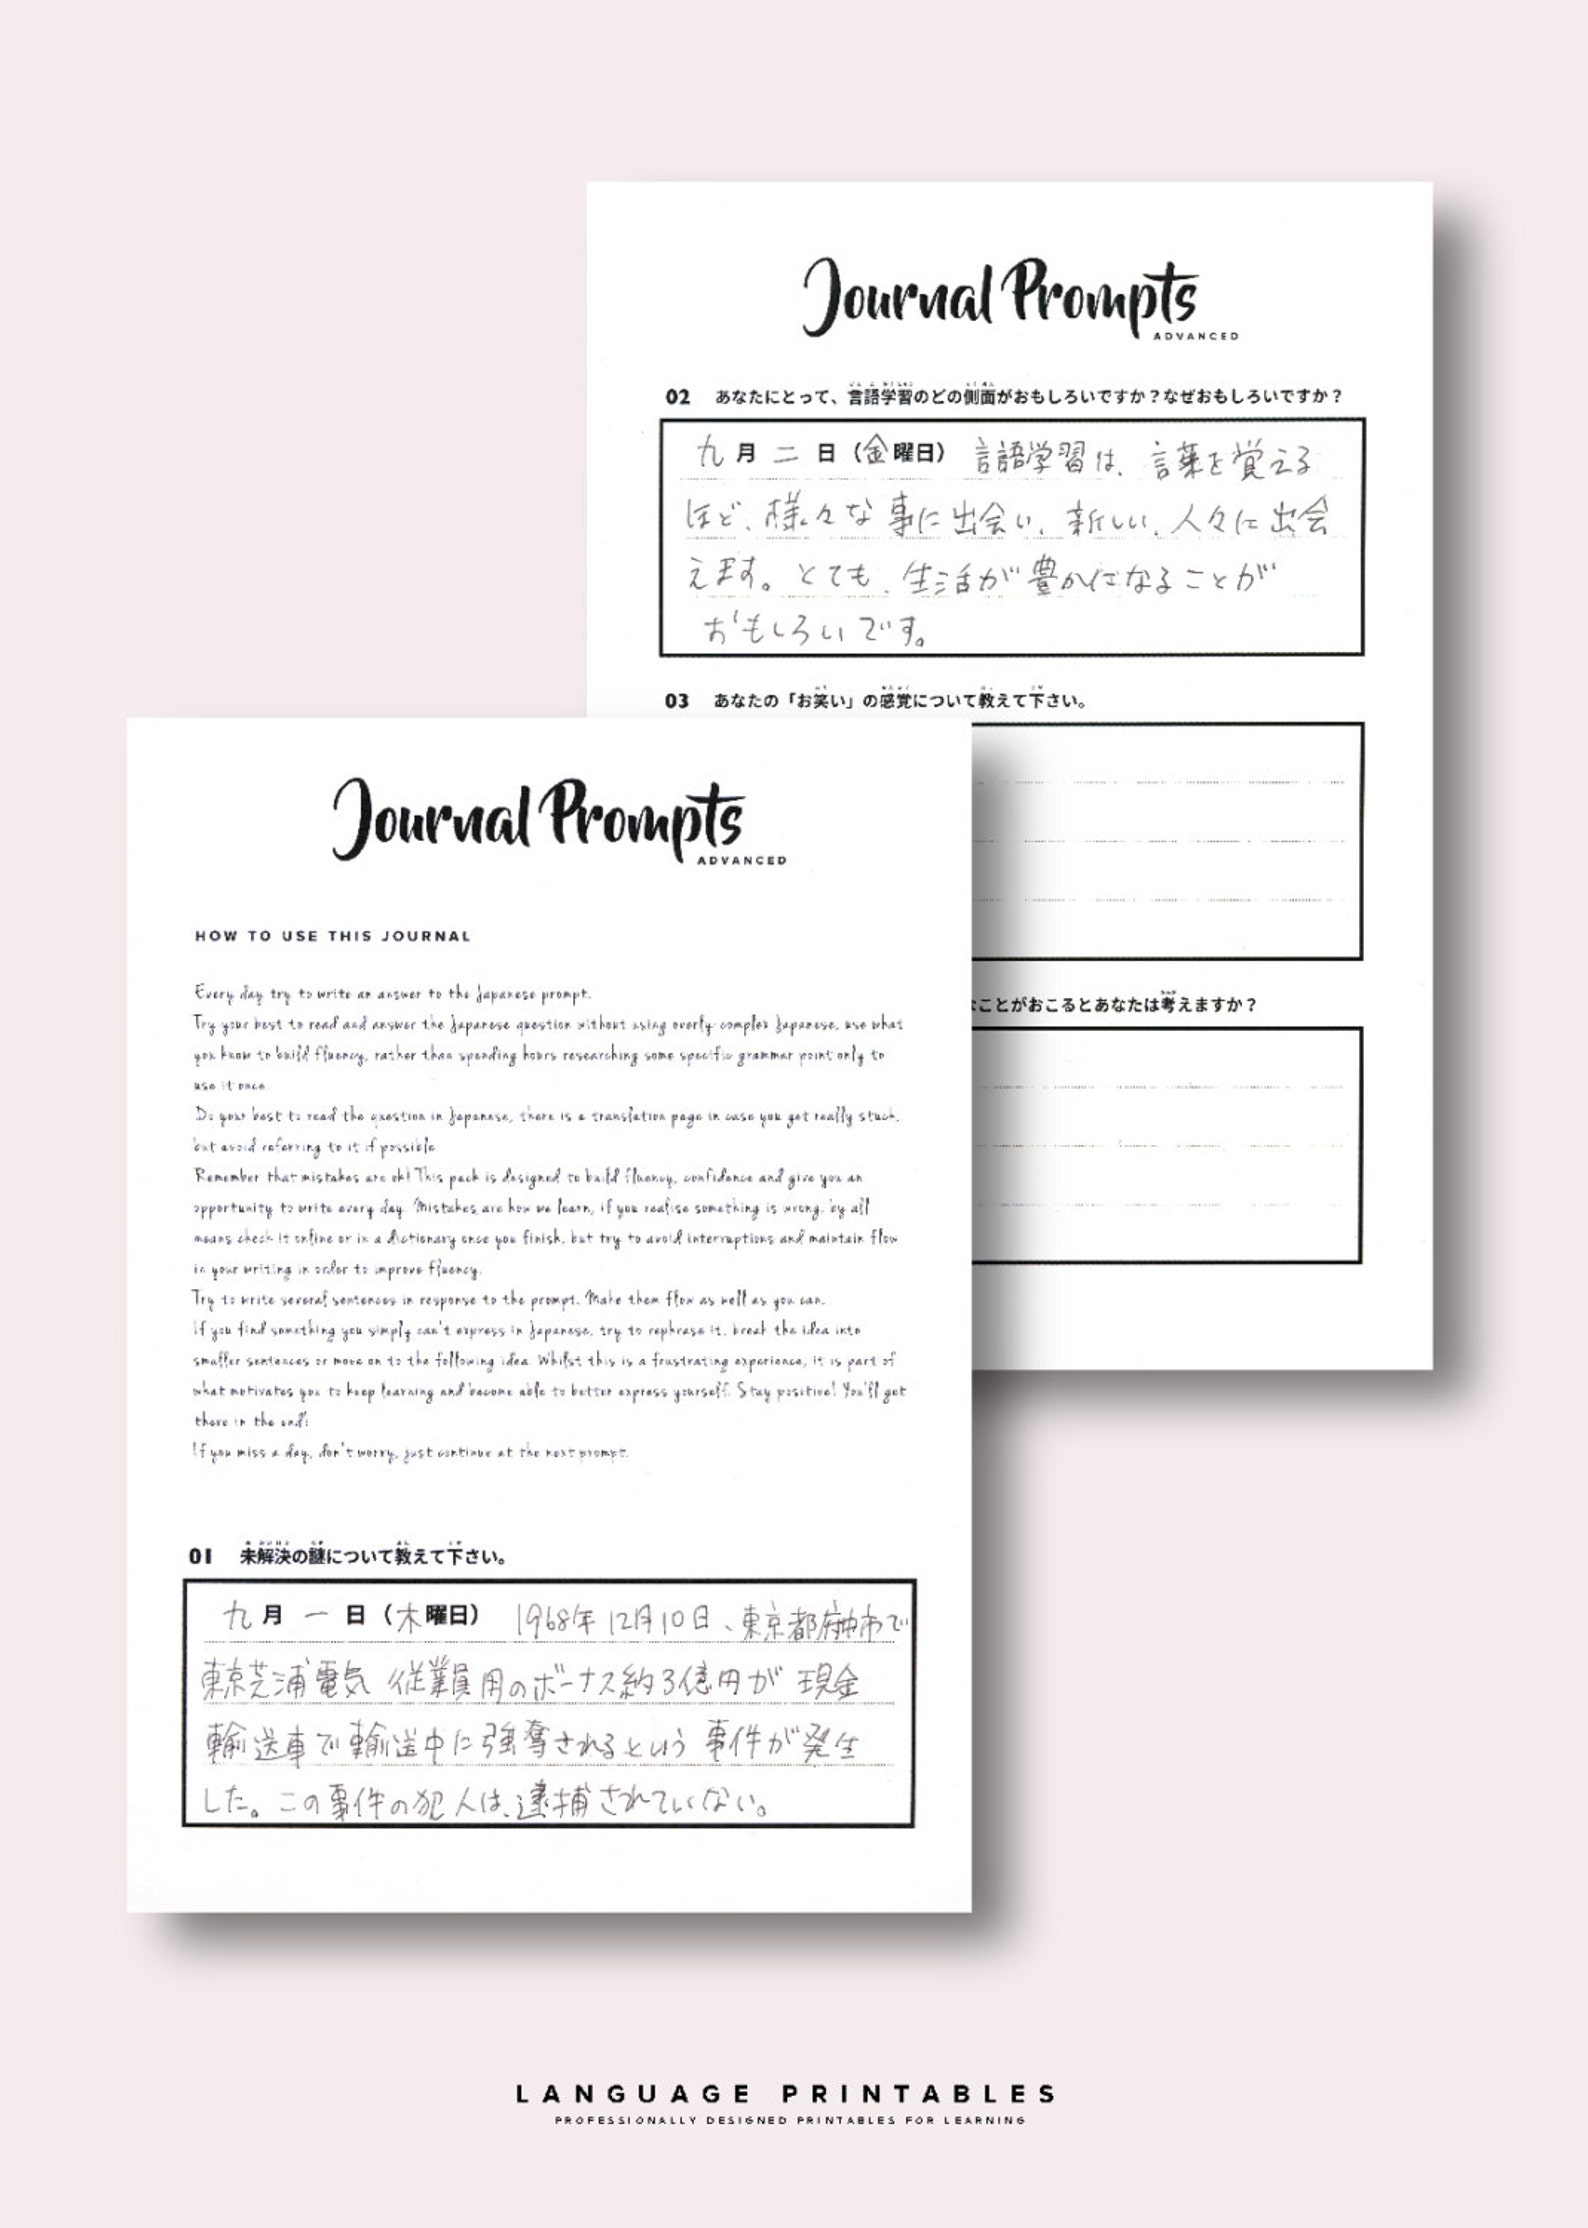 Journal Prompts
ADVANCED
02 あなたにとって、言語学習のどの側面がおもしろいですか?なぜおもしろいですか?
九月二日(金曜日) 言語学習は、言葉を覚える
ほど、様々な事に出会い、新しい、人々に出会
えます。とても、生活が豊かになることが
おもしろいです。
03 あなたの「お笑い」の感覚について教えて下さい。
ことがおこるとあなたは考えますか?
Journal Prompts
ADVANCED
HOW TO USE THIS JOURNAL
Every day try to write an answer to the Japanese prompt.
Try your best to read and answer the Japanese question without using overly complex Japanese, use what
you know to build fluency, rather than spending hours researching some specific grammar point only to
use it once
Do your best to read the question in Japanese, there is a translation page in case you get really stuck,
but avoid referring to it if possible
Remember that mistakes are ok! This pack is designed to build fluency, confidence and give you an
opportunity to write every day. Mistakes are how we learn, if you realise something is wrong, by all
means check it online or in a dictionary once you finish, but try to avoid interruptions and maintain flow
in your writing in order to improve fluency.
Try to write several sentences in response to the prompt. Make them flow as well as you can.
If you find something you simply can't express in Japanese, try to rephrase it, break the idea into
smaller sentences or move on to the following idea. Whilst this is a frustrating experience, it is part of
what motivates you to keep learning and become able to better express yourself. Stay positive! You'll get
there in the end!
If you miss a day, don't worry, just continue at the next prompt.
01 未解決の謎について教えて下さい。
九月一日(木曜日) 1968年12月10日、東京都府中市で
東京芝浦電気 従業員用のボーナス約3億円が 現金
輸送車で輸送中に強奪されるという 事件が発生
した。この事件の犯人は、逮捕されていない。
LANGUAGE PRINTABLES
PROFESSIONALLY DESIGNED PRINTABLES FOR LEARNING